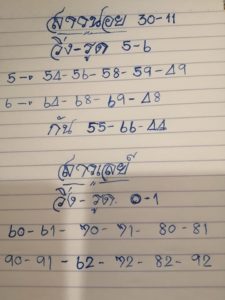 สาวน้อย 30-11
วิ่ง-รูด 5-6
5 → 54-56-58-59-49
6 → 64-68-69-48
กัน 55-66-44
วิ่ง-รูด 0-1
60-61-70-71-80-81
90-91-62-72-82-92